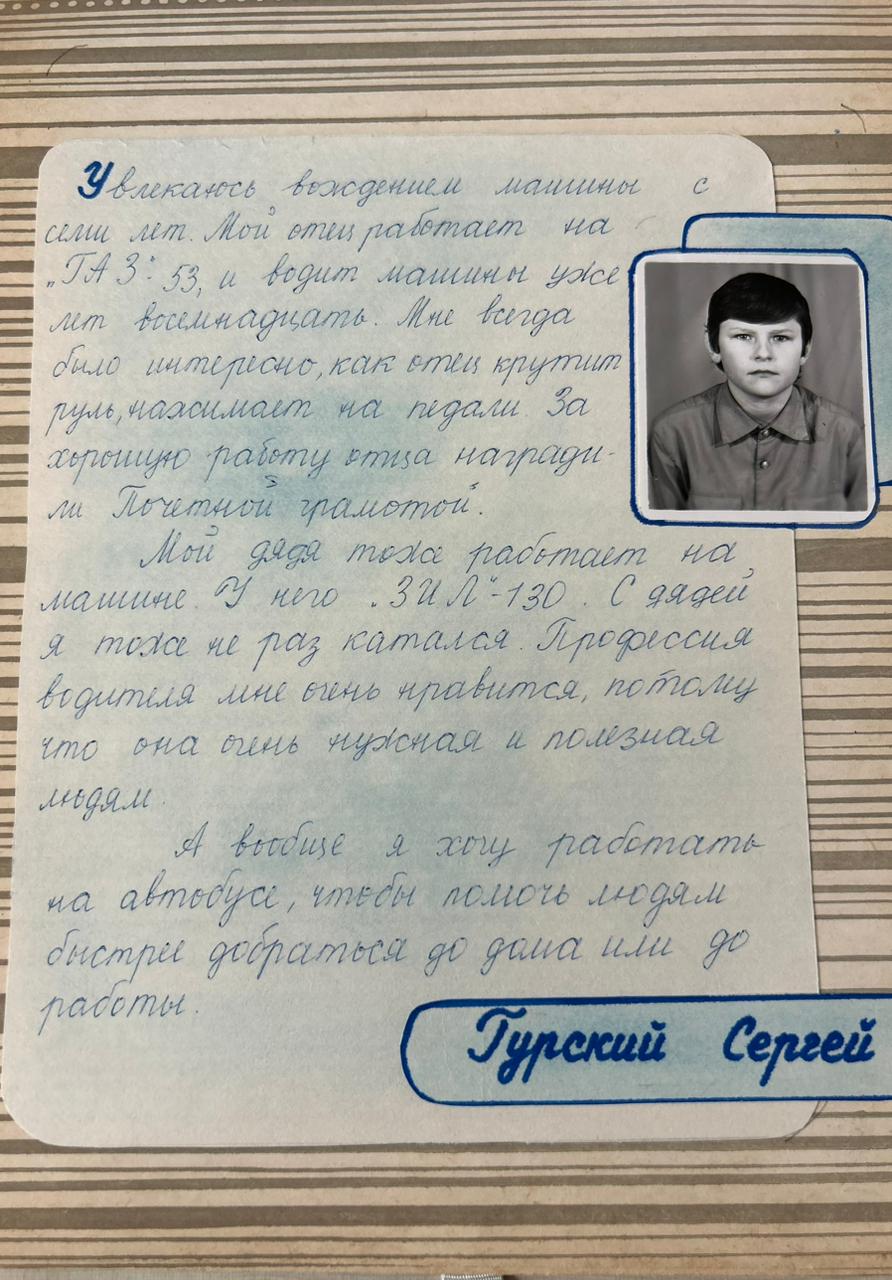 Увлекаюсь вождением машины с
семи лет. Мой отец работает на
„ГАЗ“ 53, и водит машины уже
лет восемнадцать. Мне всегда
было интересно, как отец крутит
руль, нажимает на педали. За
хорошую работу отца награди-
ли Почетной грамотой.
Мой дядя тоже работает на
машине. У него „ЗИЛ“-130. С дядей
я тоже не раз катался. Профессия
водителя мне очень нравится, потому
что она очень нужная и полезная
людям.
А вообще я хочу работать
на автобусе, чтобы помочь людям
быстрее добраться до дома или до
работы.
Гурский Сергей